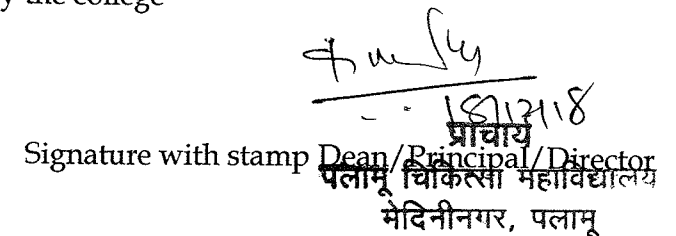 by the college
प्राचार्य
Signature with stamp Dean/Principal/Director
पलामू चिकित्सा महाविद्यालय
मेदिनीनगर, पलामू